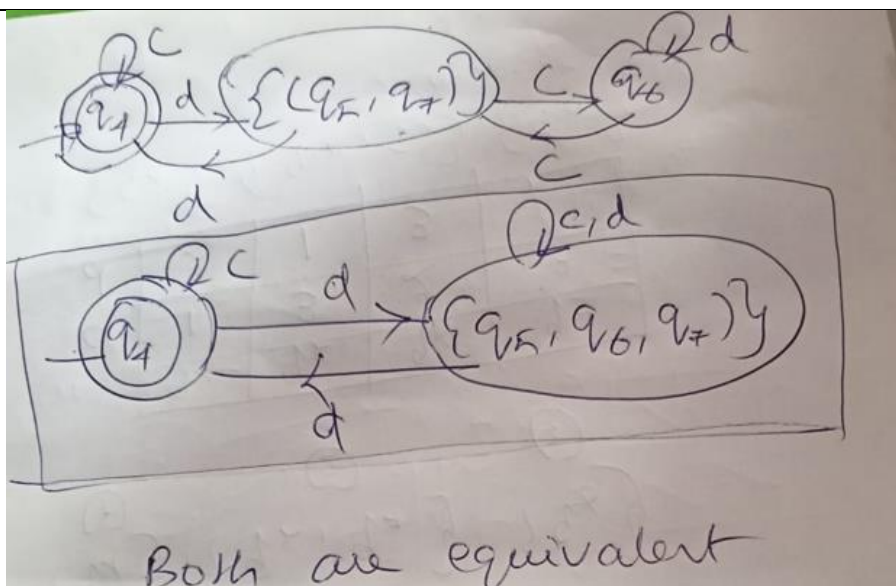 c
d
{(q5, q7)}
c
q6
d
q4
d
c
c
c, d
d
q4
{q5, q6, q7)}
d
Both are equivalent